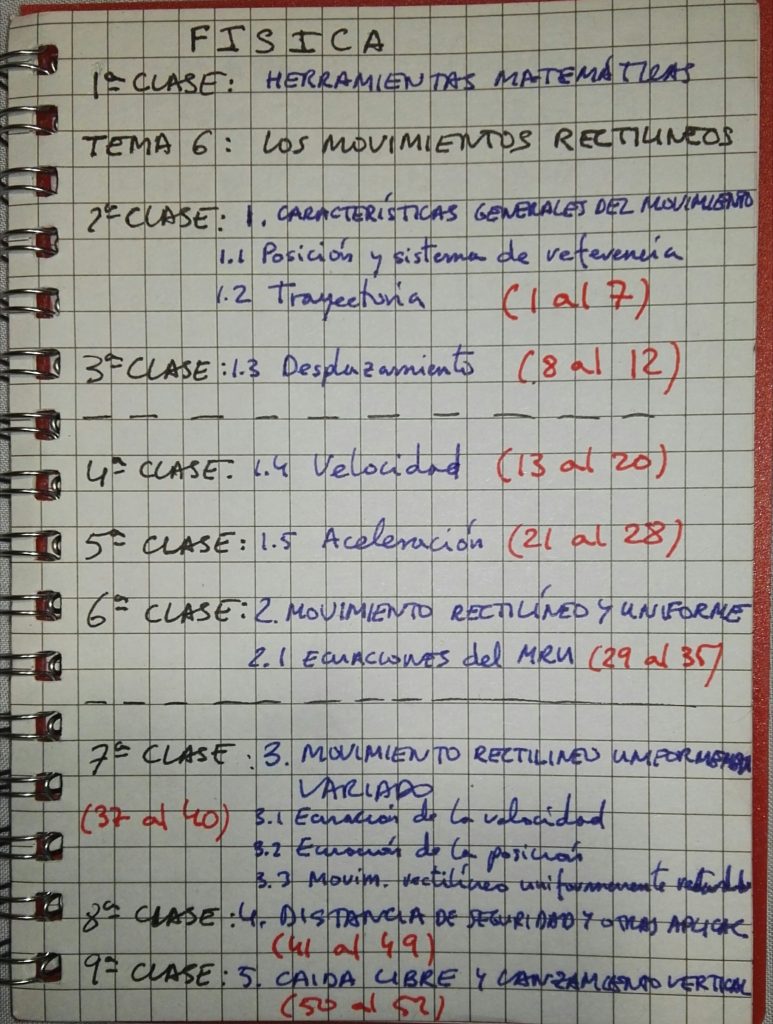 FISICA
1ª CLASE: HERRAMIENTAS MATEMÁTICAS
TEMA 6: LOS MOVIMIENTOS RECTILINEOS
2ª CLASE: 1. CARACTERÍSTICAS GENERALES DEL MOVIMIENTO
1.1 Posición y sistema de referencia
1.2 Trayectoria (1 al 7)
3ª CLASE: 1.3 Desplazamiento (8 al 12)
4ª CLASE: 1.4 Velocidad (13 al 20)
5ª CLASE: 1.5 Aceleración (21 al 28)
6ª CLASE: 2. MOVIMIENTO RECTILÍNEO Y UNIFORME
2.1 ECUACIONES del MRU (29 al 35)
7ª CLASE: 3. MOVIMIENTO RECTILINEO UNIFORMEMENTE
VARIADO
(37 al 40) 3.1 Ecuación de la velocidad
3.2 Ecuación de la posición
3.3 Movim. rectilíneo uniformemente retardado
8ª CLASE: 4. DISTANCIA DE SEGURIDAD Y OTRAS APLICAC
(41 al 49)
9ª CLASE: 5. CAIDA LIBRE Y LANZAMIENTO VERTICAL
(50 al 52)